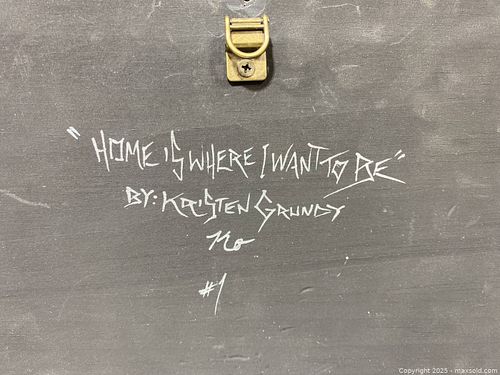 "HOME IS WHERE I WANT TO BE"
BY: KRISTEN GRUNDY
#1
Copyright 2025 - maxsold.com